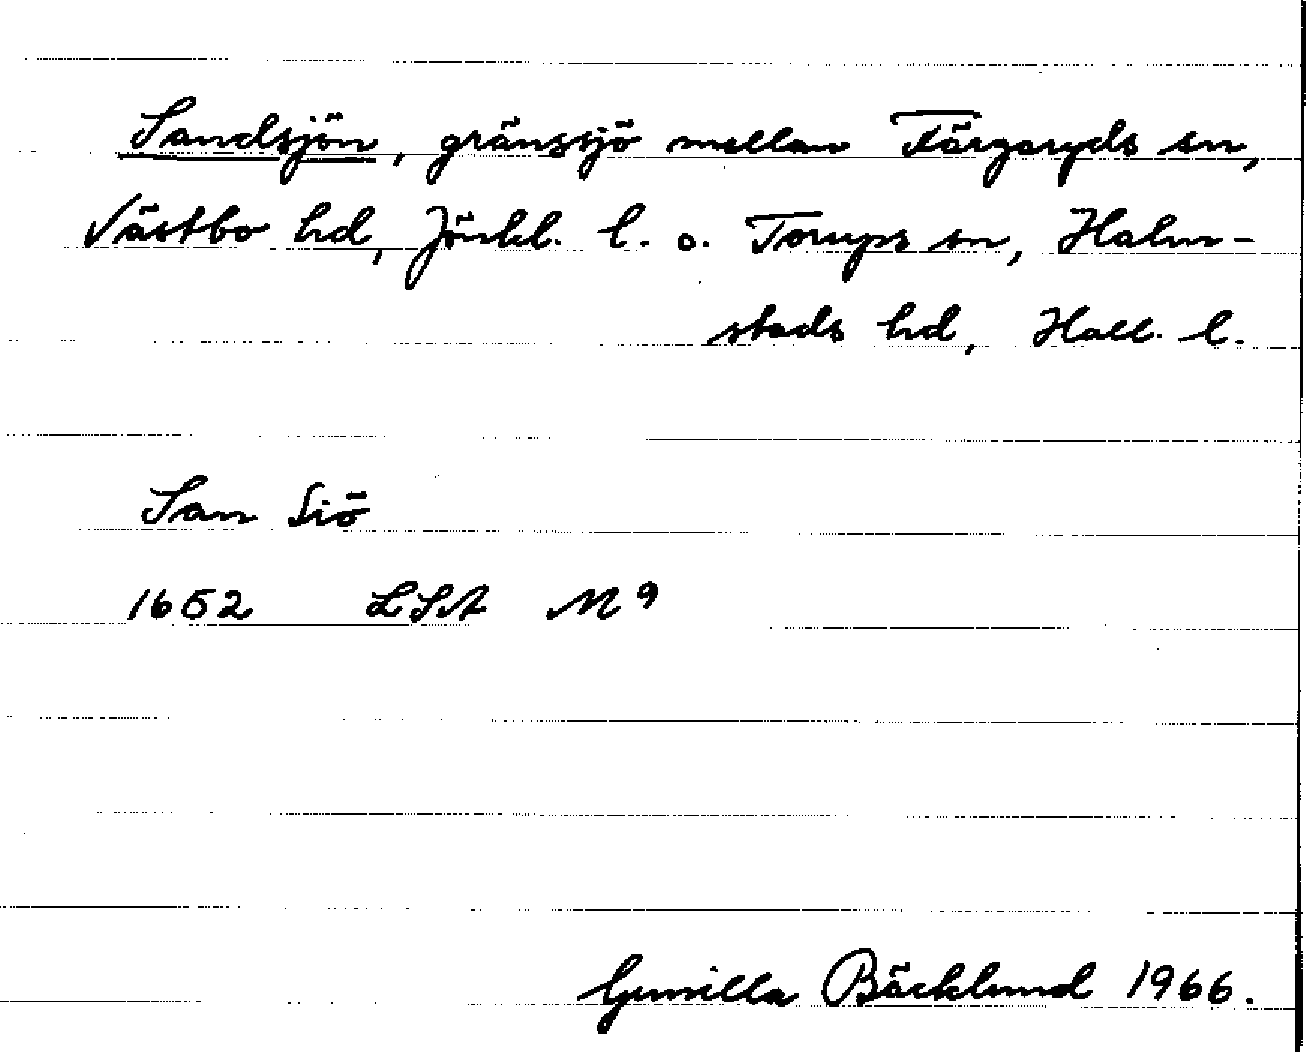 Sandsjön, gränssjö mellan Färgaryds sn,
Västbo hd, Jönkl. l. o. Torups sn, Halm-
stads hd, Hall. l.
San Siö
1652 LSA M9
Gunilla Bäcklund 1966.